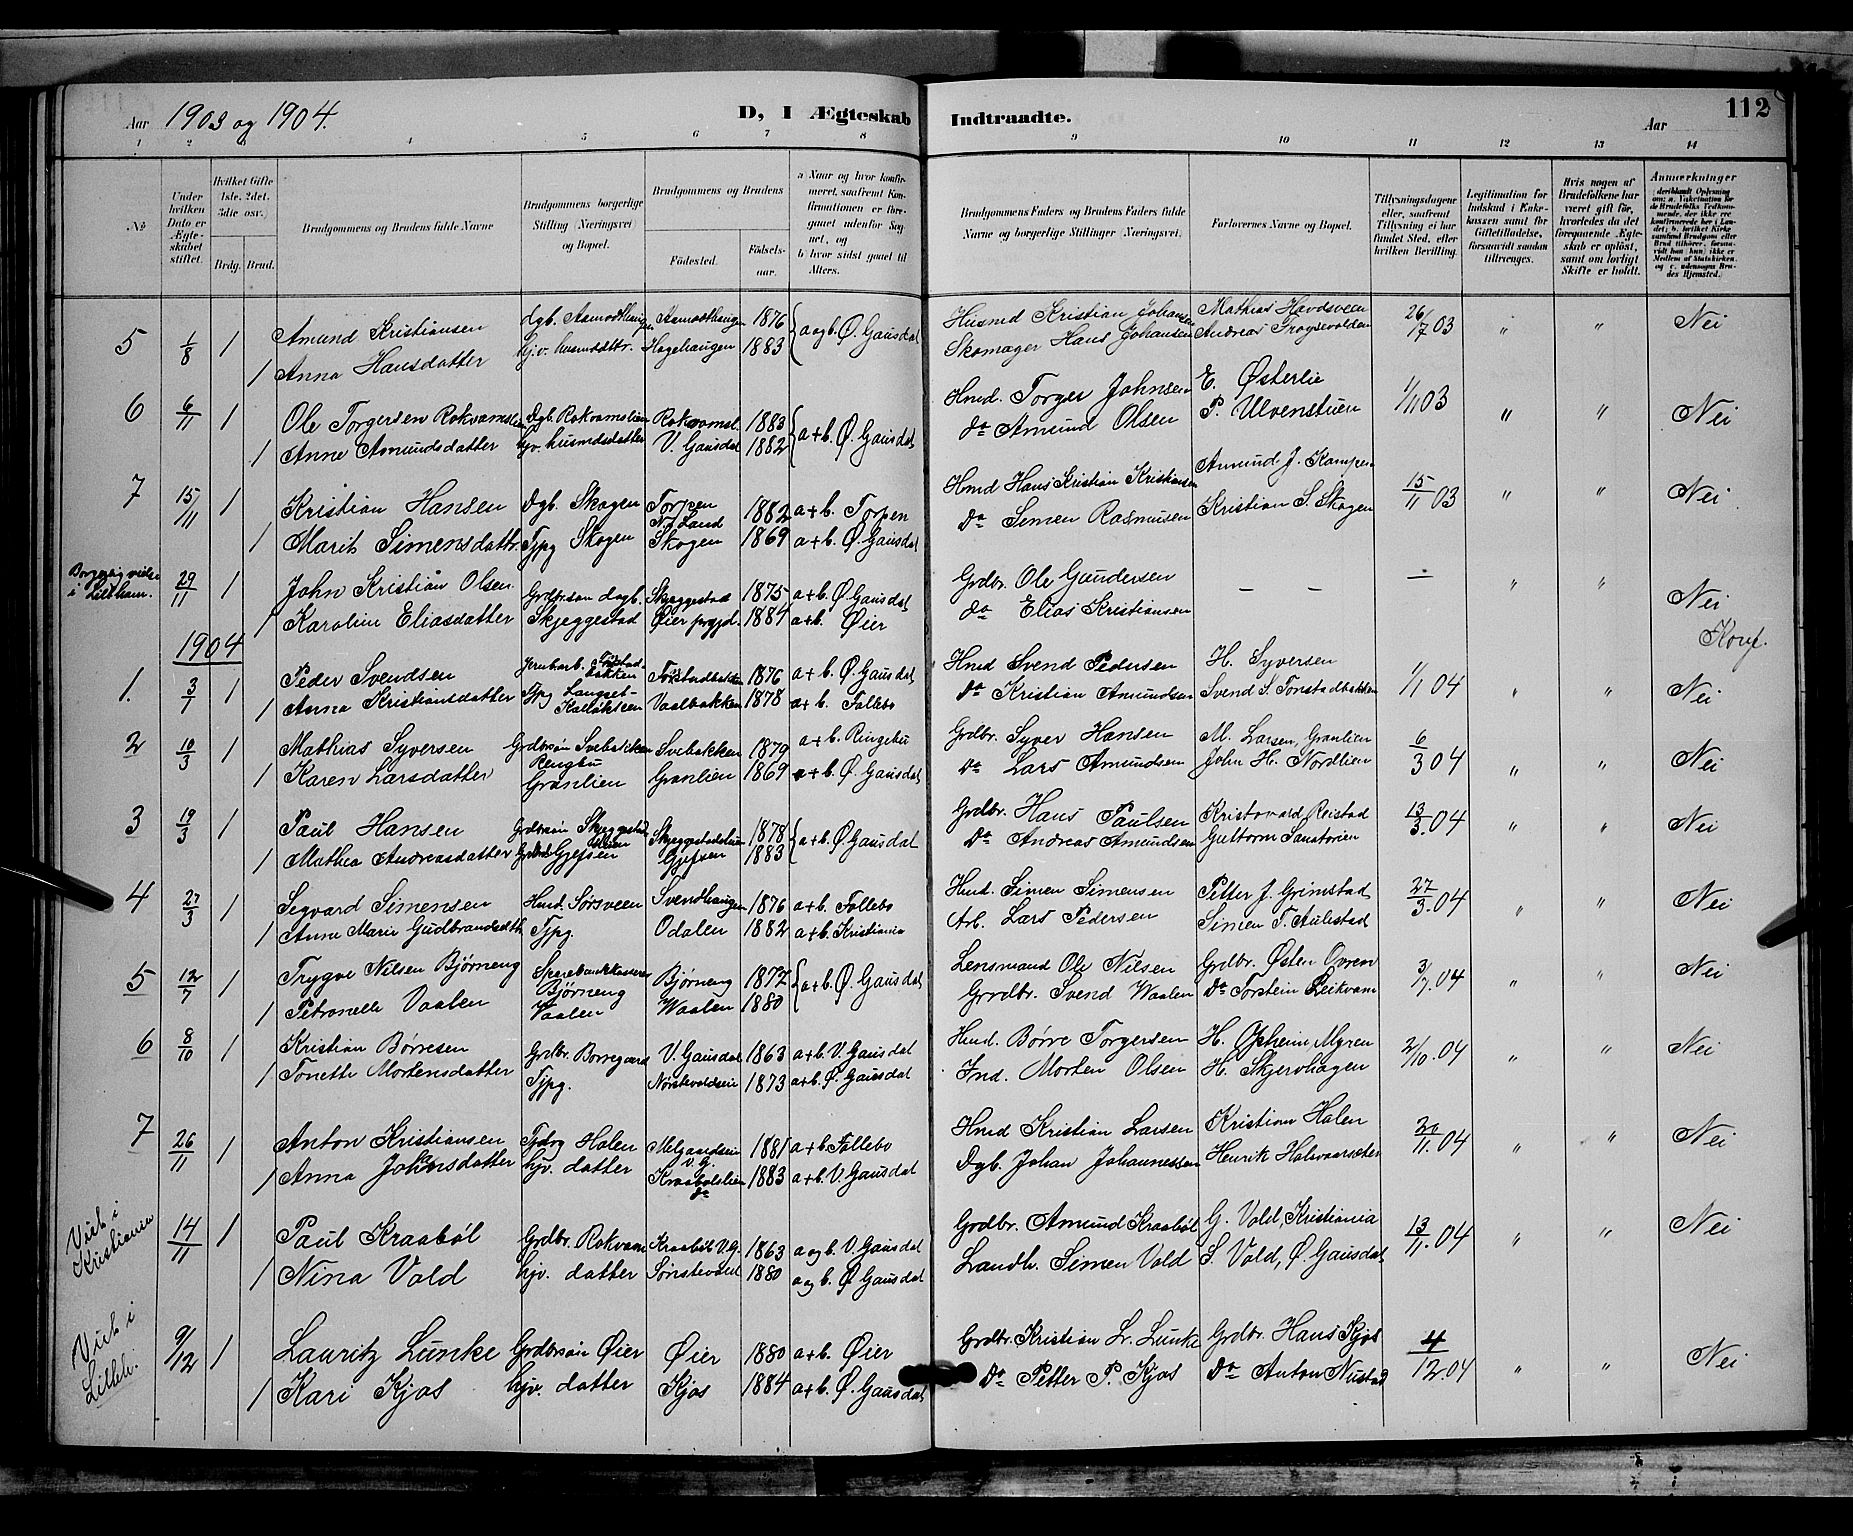 Aar 1903 og 1904.
D, I Ægteskab Indtraadte.
Aar
112
1 2 3 4 5 6 7 8 9 10 11 12 13 14
No
Under hvilken Dato er Ægteskabet stiftet.
Hvilket Gifte 1ste. 2det. 3die osv.)
Brdg. Brud.
Brudgommens og Brudens fulde Navne
Brudgommens borgerlige Stilling (Næringsvei) og Bopæl.
Brudgommens og Brudens
Födested.
Födselsaar.
a Naar og hvor konfirmeret, saafremt Konfirmationen er foregaaet udenfor Sognet, og
b hvor sidst gaaet til Alters.
Brudgommens Faders og Brudens Faders fulde Navne og borgerlige Stillinger (Næringsvei).
Forlovernes Navne og Bopæl.
Tillysningsdagene eller, saafremt Tillysning ei har fundet Sted, efter hvilken Bevilling.
Legitimation for Indskud i Enkekassen samt for Giftetilladelse, forsaavidt saadan tiltrænges.
Hvis nogen af Brudefolkene har været gift för, hvorledes da det foregaaende Ægteskab er oplöst, samt om lovligt Skifte er holdt.
Anmærkninger
5 1/8 1 Amund Kristiansen dgb. Aamodthaugen Aamodthaugen 1876 { a og b. Ø. Gausdal Husmd Kristian Johansen Mathias Havdsveen 26/7 03 " " Nei
1 Anna Hansdatter hjv. husmddtr. Hagehaugen 1883 Skomager Hans Johansen Andreas
6 6/11 1 Ole Torgersen Rokvamslien Dgb. Rokvamslien Rokvamsl. 1883 { a + b. Ø. Gausdal Hmd. Torger Johnsen E. Østerlie 1/11 03 " " Nei
1 Anne Amundsdatter hjv. husmdsdatter V. Gausdal 1882 do Amund Olsen P. Ulvenstuen
7 15/11 1 Kristian Hansen Dgb. Skogen Torpen N. Land 1882 a + b. Torpen Hmd Hans Kristian Kristiansen Amund J. Kampen 15/11 03 " " Nei
1 Marit Simensdattr. Tjpg Skogen Skogen 1869 a + b. Ø. Gausdal Do Simen Rasmusen Kristian S. Skogen
Borgerlig vielse i Lilleham. 29/11 1 John Kristian Olsen Grdbrsøn dagb. Skjeggestad 1875 a + b. Ø. Gausdal Grdbr. Ole Gundersen — — — " " Nei
1 Karoline Eliasdatter Skjeggestad Øier prgjd. 1884 a + b. Øier do Elias Kristiansen
Konf.
1904
1. 3/1 1 Peder Svendsen Jernbarb. Tonstadbakken 1876 a + b. Ø. Gausdal Hmd Svend Pedersen H. Syversen 1/1 04 " " Nei
1 Anna Kristiansdatter Tjpg Vaalbakken 1878 a + b. Follebo Do Kristian Amundsen Svend S. Tonstadbakken
2 10/3 1 Mathias Syversen Grdbrsøn Svebakken Ringebu Svebakken 1879 a + b. Ringebu Grdbr. Syver Hansen M. Larsen, Granlien 6/3 04 " " Nei
1 Karen Larsdatter Granlien Granlien 1869 a + b. Ø. Gausdal Do Lars Amundsen John H. Nordlien
3 19/3 1 Paul Hansen Grdbrsøn Skjeggestadlien Skjeggestadlien 1878 { a + b. Ø. Gausdal Grdbr. Hans Paulsen Kristovald Reistad 13/3.04 " " Nei
1 Mathea Andreasdatter Gjefsen Gjefsen 1883 Do Andreas Amundsen Guttorm Sanatorien
4 27/3 1 Segvard Simensen Hmd. Sørsveen Svendhaugen 1876 a + b. Follebo Hmd. Simen Simensen Petter J. Grimstad 27/3.04 " " Nei
1 Anne Marie Gudbrandsdth Tjpg. Odalen 1882 a + b. Kristiania Arb. Lars Pedersen Simen T. Aulestad
5 12/7 1 Trygve Nilsen Bjørneng Bjørneng Bjørneng 1872 { a + b. Ø. Gausdal Lensmand Ole Nilsen Grdbr. Østen Ovren 3/7.04 " " Nei
1 Petronelle Vaalen Vaalen Waalen 1880 Grdbr. Svend Waalen Do Torstein Reikvam
6 8/10 1 Kristian Børresen Grdbr. Borregaard V. Gausdal 1863 a + b. V. Gausdal Hmd. Børre Torgersen H. Opheim Myren 2/10.04 " " Nei
1 Tonette Mortensdatter Tjpg. 1873 a + b. Ø. Gausdal Ind. Morten Olsen H. Skjervhagen
7 26/11 1 Anton Kristiansen Tjdrg Holen Melgaardseie V. G. 1881 a + b Follebo Hmd Kristian Larsen Kristian Holen 20/11.04 " " Nei
1 Anna Johansdatter hjv. datter Kraabølslien do 1883 a + b. V. Gausdal Dgb. Johan Johannessen Henrik Halvaarsæter
Viet i Kristiania 14/11 1 Paul Kraabøl Grdbr. Rokvam Kraabøl V. G. 1863 a og b. V. Gausdal Grdbr. Amund Kraabøl G. Vold, Kristiania 13/11.04 " " Nei
1 Nina Vold hjv. datter Sønstevold 1880 a og b. Ø. Gausdal Landh. Simen Vold S. Vold, Ø. Gausdal
Viet i Lilleh. 9/12 1 Lauritz Lunke Grdbrsøn Øier Øier 1880 a + b. Øier Grdbr. Kristian Lr. Lunke Grdbr. Hans Kjos 4/12.04 " " Nei
1 Kari Kjos hjv. datter Kjos 1884 a + b. Ø. Gausdal Do Petter P. Kjos Do Anton Nustad